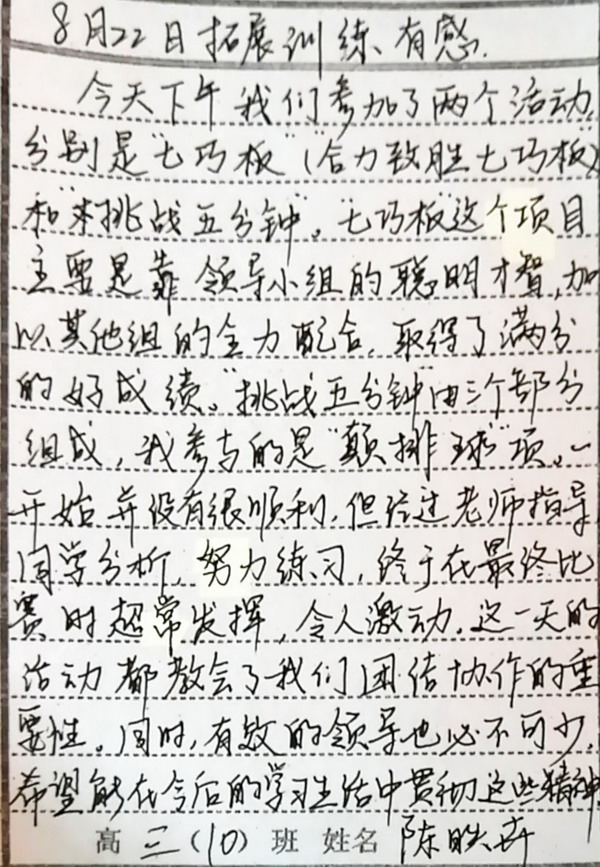 8月22日拓展训练有感.
今天下午我们参加了两个活动
分别是"七巧板"(合力致胜七巧板)
和"挑战五分钟"。"七巧板"这个项目
主要是靠领导小组的聪明才智,加
以其他组的全力配合,取得了满分
的好成绩。"挑战五分钟"由三个部分
组成,我参与的是"颠排球"项。一
开始并没有很顺利,但经过老师指导
同学分析,努力练习,终于在最终比
赛时超常发挥,令人激动.这一天的
活动都教会了我们团结协作的重
要性。同时,有效的领导也必不可少.
希望能在今后的学习生活中贯彻这些精神
高三(10)班 姓名 陈